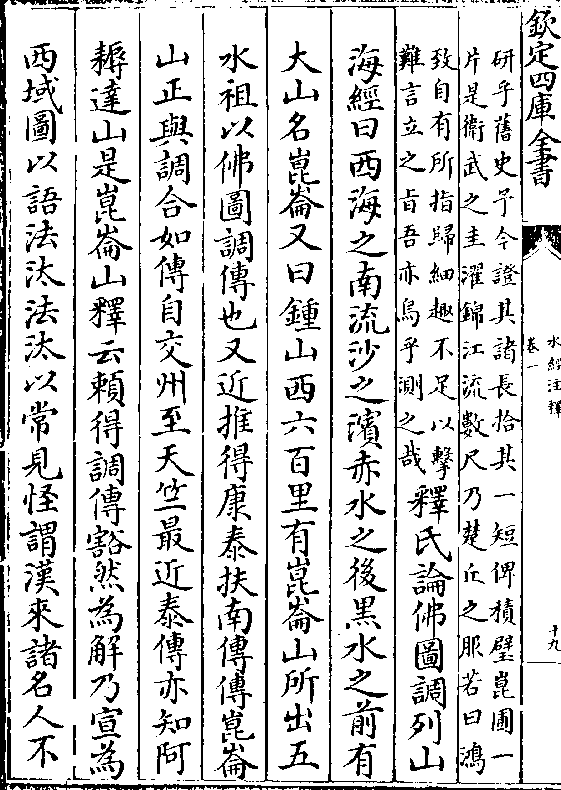 欽定四庫全書
水經注釋
卷一
十九
研乎舊史予今證其諸長拾其一短俾積璧崑圃一
片是衛武之圭濯錦江流數尺乃楚丘之服若曰鴻
致自有所指歸細趣不足以擊
難言立之㫖吾亦烏乎測之哉釋氏論佛圖調列山
海經曰西海之南流沙之濵赤水之後黒水之前有
大山名崑崙又曰鍾山西六百里有崑崙山所出五
水祖以佛圖調傳也又近推得康泰扶南傳傳崑崙
山正與調合如傳自交州至天竺最近泰傳亦知阿
耨達山是崑崙山釋云頼得調傳豁然為解乃宣為
西域圖以語法汰法汰以常見怪謂漢來諸名人不